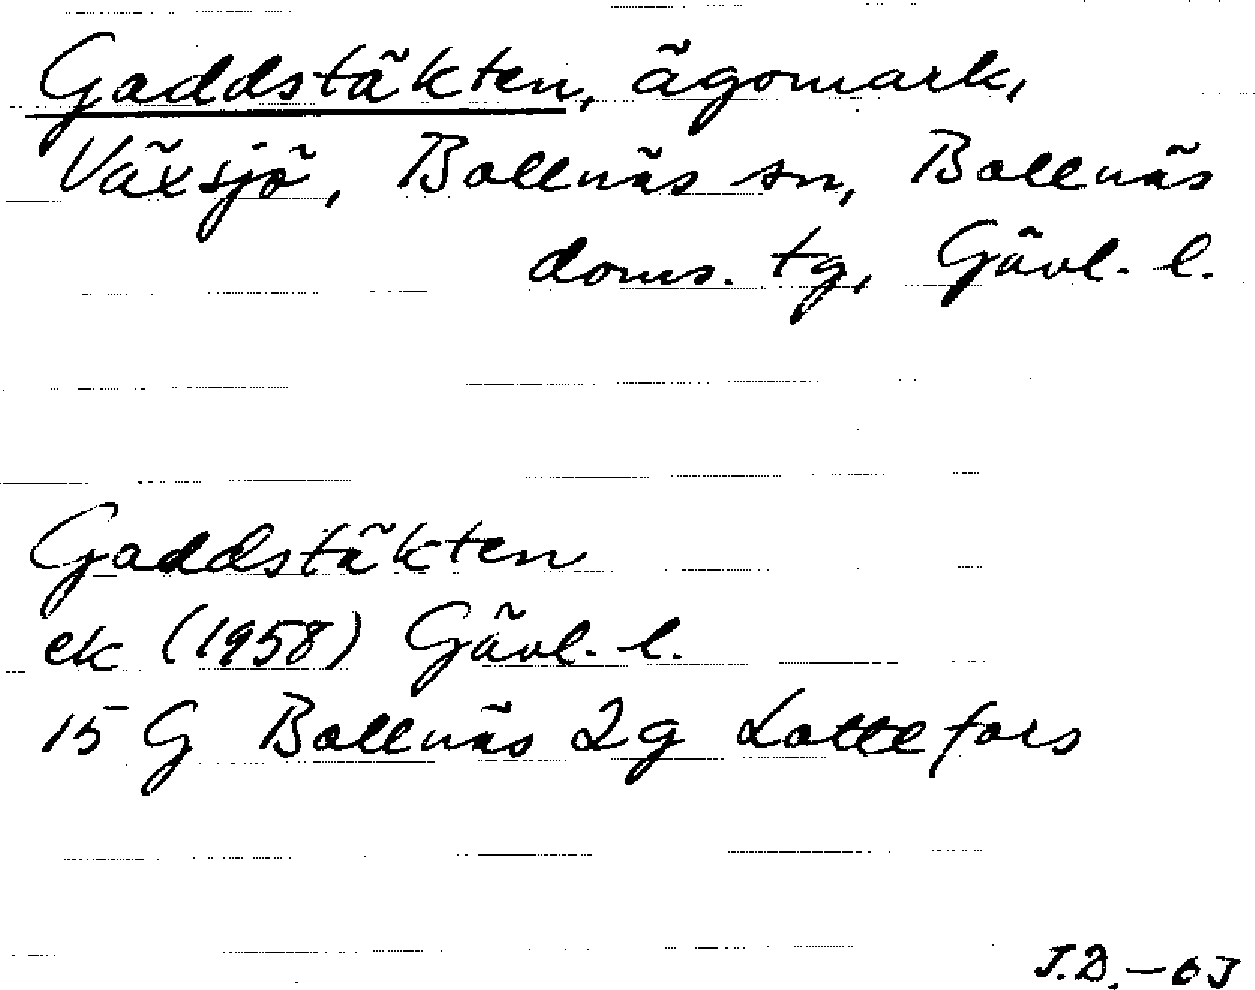 Gaddstäkten, ägomark,
Växsjö, Bollnäs sn, Bollnäs
doms. tg, Gävl. l.
Gaddstäkten
ek (1958) Gävl. l.
15 G Bollnäs 2g Lottefors
J.D. – 63